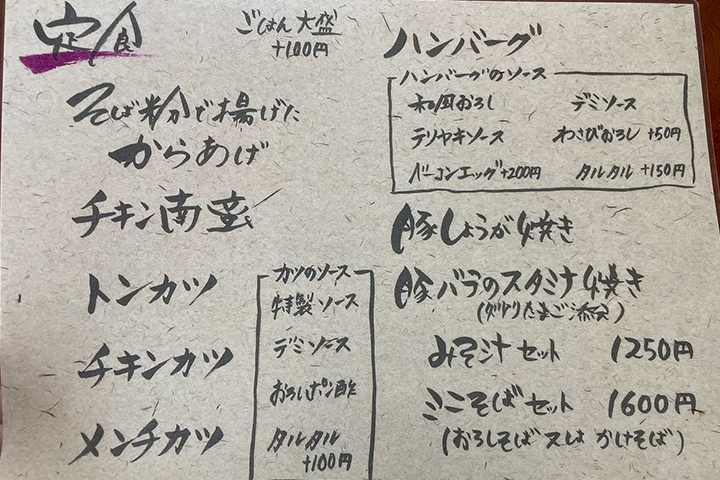 定食
ごはん大盛
+100円
そば粉で揚げた
からあげ
チキン南蛮
トンカツ
チキンカツ
メンチカツ
カツのソース
特製ソース
デミソース
おろしポン酢
タルタル
+100円
ハンバーグ
ハンバーグのソース
和風おろし デミソース
テリヤキソース わさびおろし+50円
ベーコンエッグ+200円 タルタル+150円
豚しょうが焼き
豚バラのスタミナ焼き
(グルリたまご添え)
みそ汁セット 1250円
ミニそばセット 1600円
(おろしそば又はかけそば)